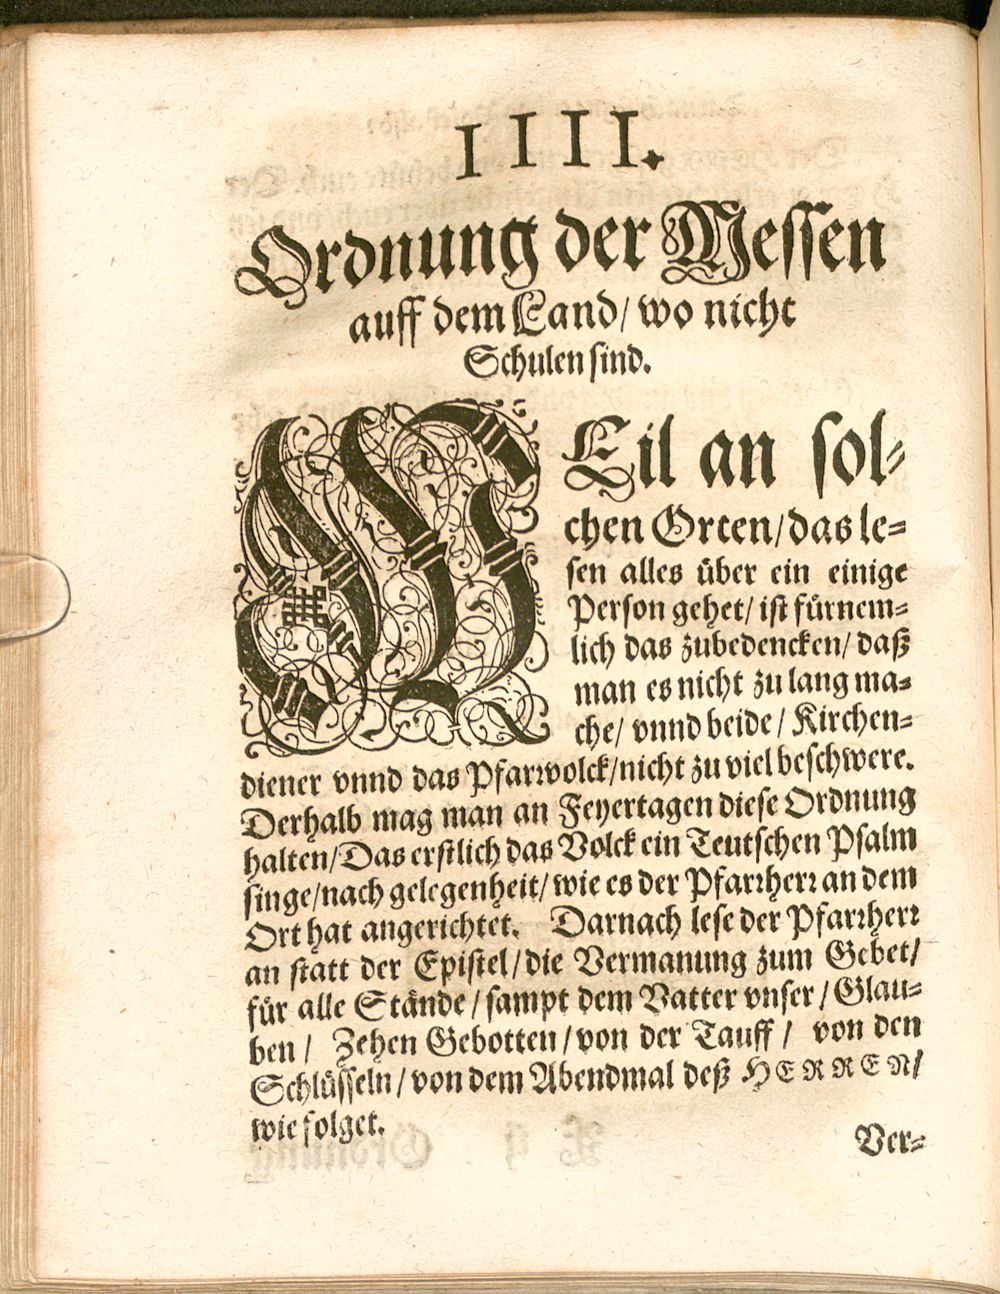 IIII.
Ordnung der Messen
auff dem Land/ wo nicht
Schulen sind.
WEil an sol-
chen Orten/ das le-
sen alles über ein einige
Person gehet/ ist fürnem-
lich das zubedencken/ daß
man es nicht zu lang ma-
che/ vnnd beide/ Kirchen-
diener vnnd das Pfarrvolck/ nicht zu viel beschwere.
Derhalb mag man an Feyertagen diese Ordnung
halten/ Das erstlich das Volck ein Teutschen Psalm
singe/ nach gelegenheit/ wie es der Pfarrherr an dem
Ort hat angerichtet. Darnach lese der Pfarrherr
an statt der Epistel/ die Vermanung zum Gebet/
für alle Stände/ sampt dem Vatter vnser/ Glau-
ben/ Zehen Gebotten/ von der Tauff/ von den
Schlüsseln/ von dem Abendmal deß HERREN/
wie folget.
Ver-